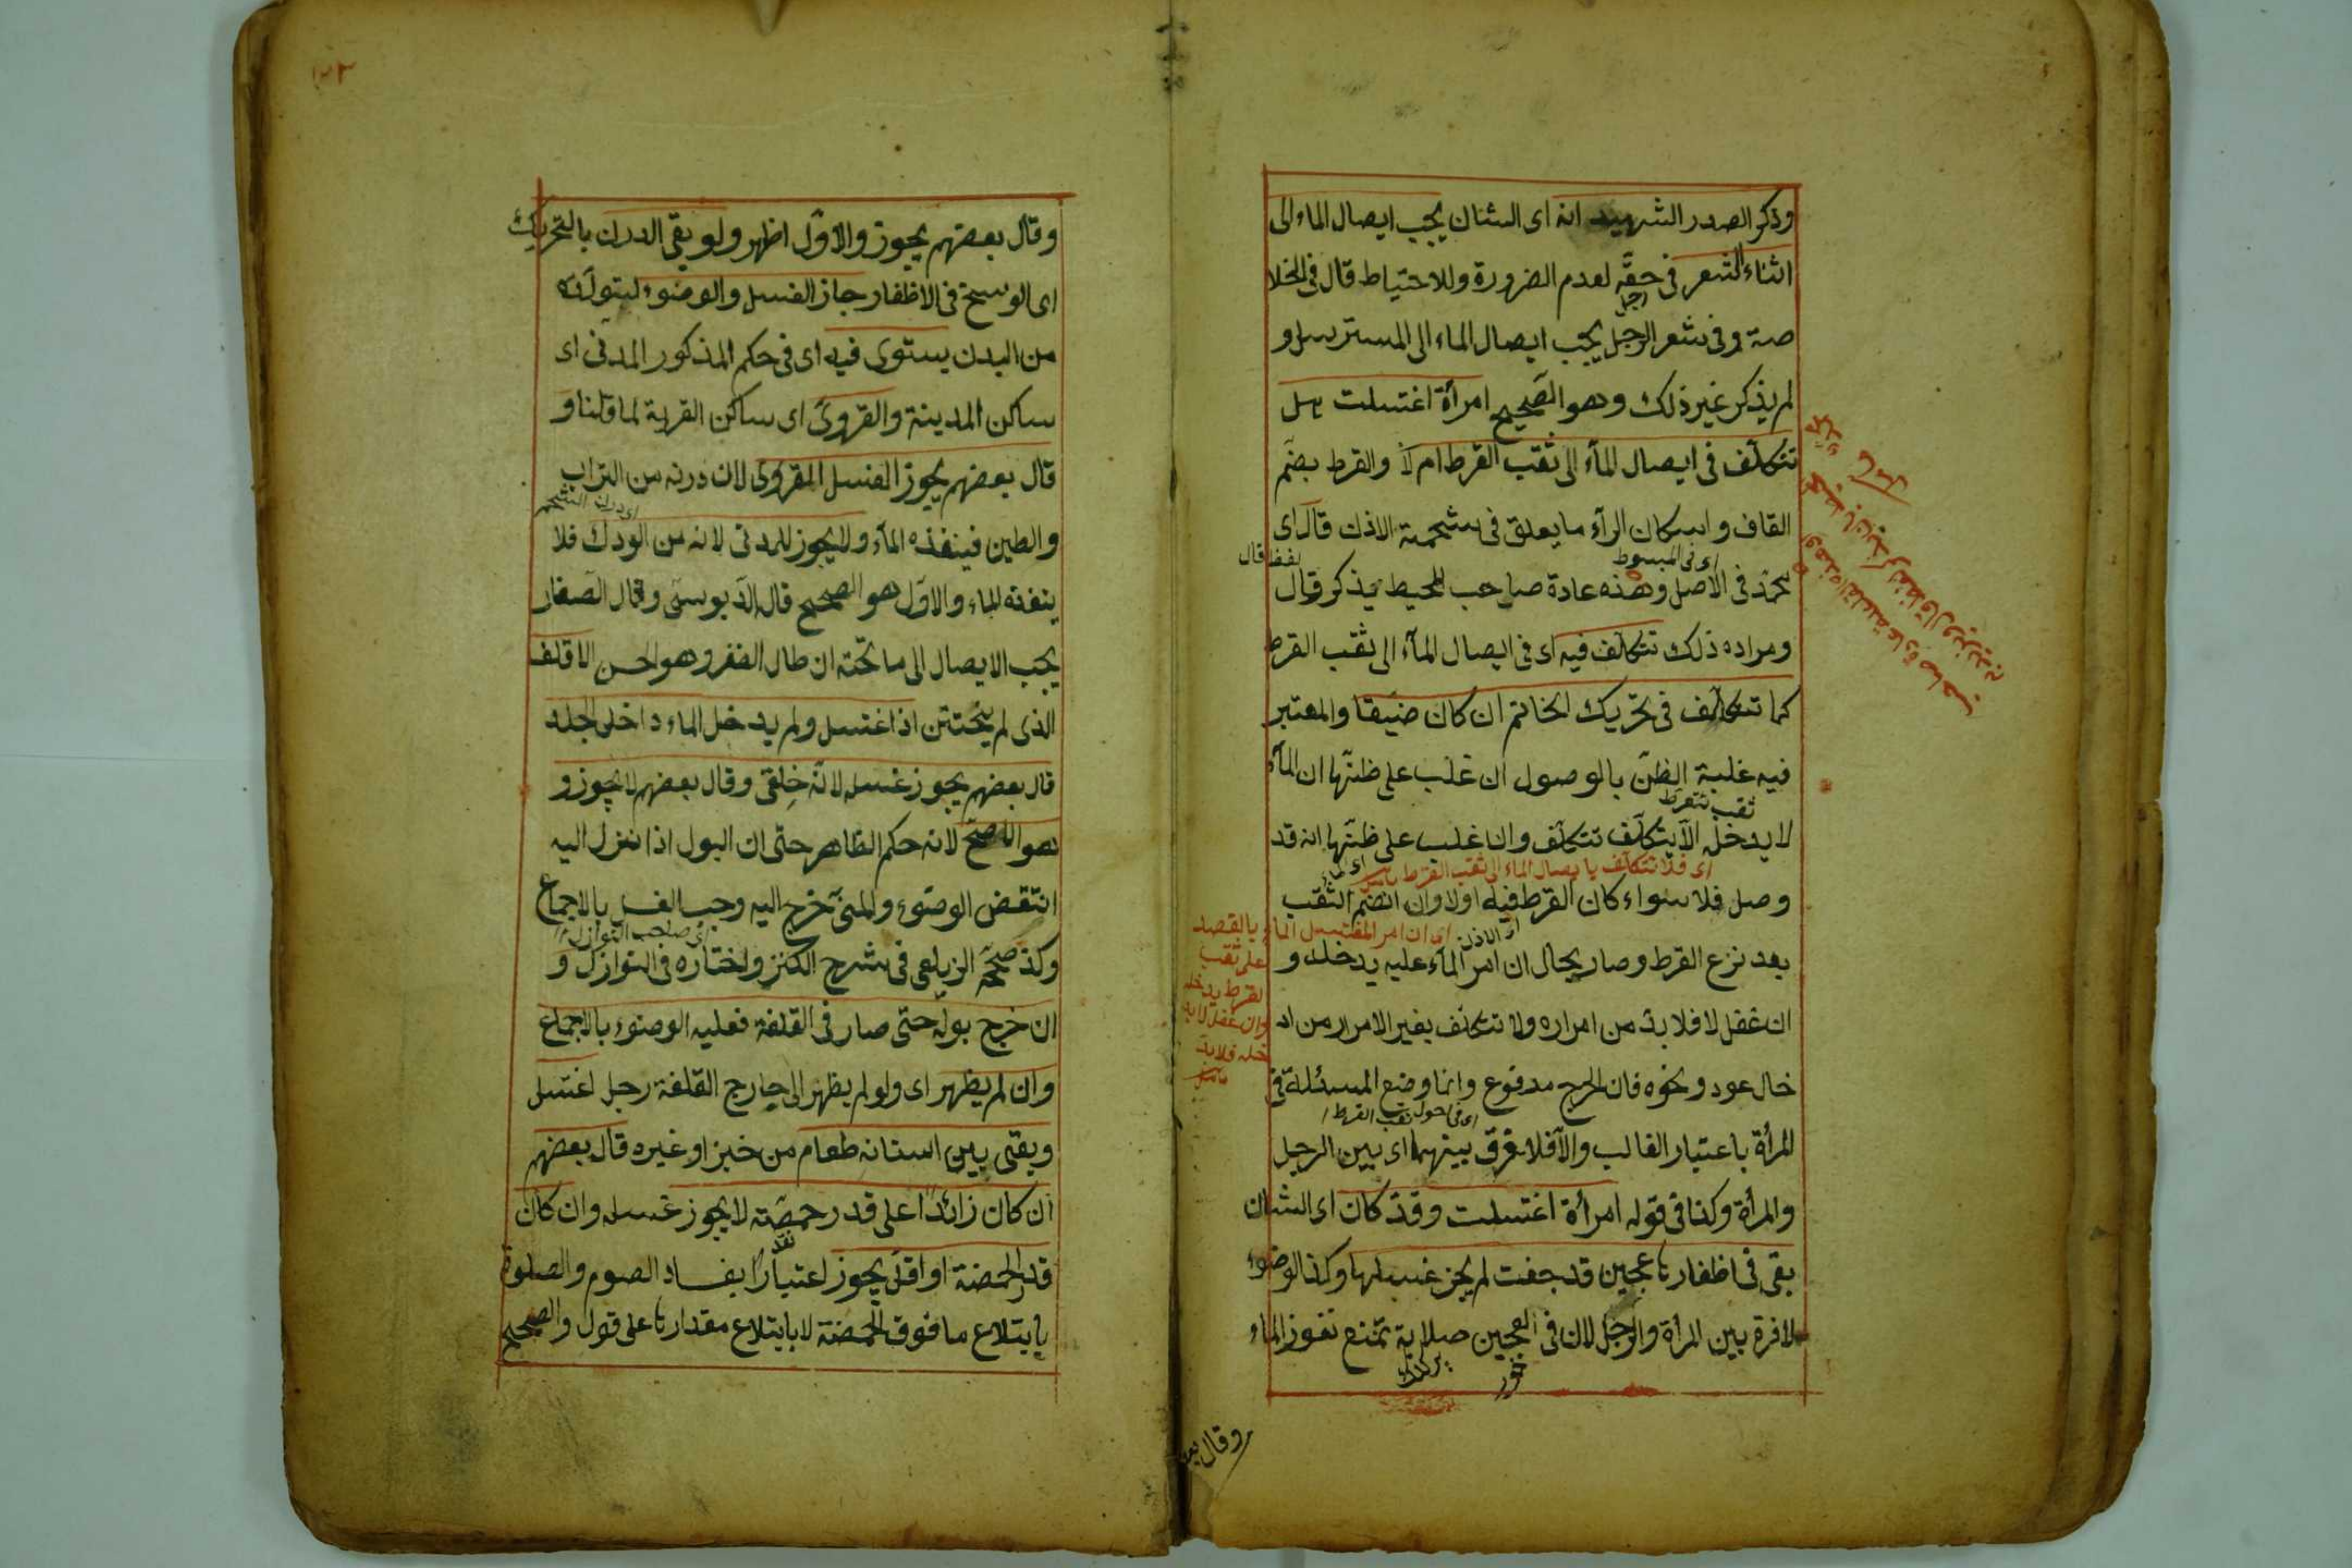 وذكر الصدر الشهيد انه اى الشان يجب ايصال الماء الى
اثناء الشعر فى حقه لعدم الضرورة وللاحتياط قال فى الخلا
صة وفى شعر الرجل يجب ايصال الماء الى المسترسل و
لم يذكر غير ذلك وهو الصحيح امرأة اغتسلت هل
تتكلف فى ايصال الماء الى ثقب القرط ام لا والقرط بضم
القاف واسكان الراء ما يعلق فى شحمة الاذن قال اى
اى فى المبسوط
لفظ قال
محمد فى الاصل وهذه عادة صاحب المحيط يذكر قال
ومراده ذلك تتكلف فيه اى فى ايصال الماء الى ثقب القرط
كما تتكلف فى تحريك الخاتم ان كان ضيقا والمعتبر
فيه غلبة الظن بالوصول ان غلب على ظنها ان الماء
ثقب القرط
لا يدخله الا بتكلف تتكلف وان غلب على ظنها انه قد
اى فلا تتكلف بايصال الماء الى ثقب القرط
وصل فلا سواء كان القرط فيه اولا وان انضم الثقب
اى ان امر المغتسل الماء بالقصد
على ثقب
القرط يدخله
وان غفل لا يد
خله فلا بد
بعد نزع القرط وصار بحال ان امر الماء عليه يدخله و
ان غفل لا فلا بد من امراره ولا تتكلف بغير الامرار من اد
خال عود ونحوه فان الحرج مدفوع وانما وضع المسئلة فى
اى فى دخول ثقب القرط
المرأة باعتبار الغالب والا فلا فرق بينهما اى بين الرجل
والمرأة وكذا فى قوله امرأة اغتسلت وقد كان اى الشان
بقى فى اظفارها عجين قد جفت لم يجز غسلها وكذا الوضوء
لا فرق بين المرأة والرجل لان فى العجين صلابة تمنع نفوذ الماء
وقال بعـ
١٢٢
وقال بعضهم يجوز والاول اظهر ولو بقى الدرن بالتحريك
اى الوسخ فى الاظفار جاز الغسل والوضوء لتولده
من البدن يستوى فيه اى فى حكم المذكور المدنى اى
ساكن المدينة والقروى اى ساكن القرية لما قلنا و
قال بعضهم يجوز الغسل للقروى لان درنه من التراب
والطين فينفذه الماء ولا يجوز للمدنى لانه من الودك فلا
ينفذه الماء والاول هو الصحيح قال الدبوسى وقال الصفار
يجب الايصال الى ما تحته ان طال الظفر وهو احسن الاقلف
الذى لم يختتن اذا اغتسل ولم يدخل الماء داخل الجلد
قال بعضهم يجوز غسله لانه خلقى وقال بعضهم لا يجوز و
هو الاصح لانه حكم الظاهر حتى ان البول اذا نزل اليه
انتقض الوضوء والمنى خرج اليه وجب الغسل بالاجماع
اى صاحب النوازل
وكذا صححه الزيلعى فى شرح الكنز واختاره فى النوازل و
ان خرج بوله حتى صار فى القلفة فعليه الوضوء بالاجماع
وان لم يظهر اى ولو لم يظهر الى خارج القلفة رجل اغتسل
وبقى بين اسنانه طعام من خبز او غيره قال بعضهم
ان كان زائدا على قدر حمصة لا يجوز غسله وان كان
قدر الحمصة او اقل يجوز اعتبارا بفساد الصوم والصلوة
بابتلاع ما فوق الحمصة لا بابتلاع مقدارها على قول والصحيح